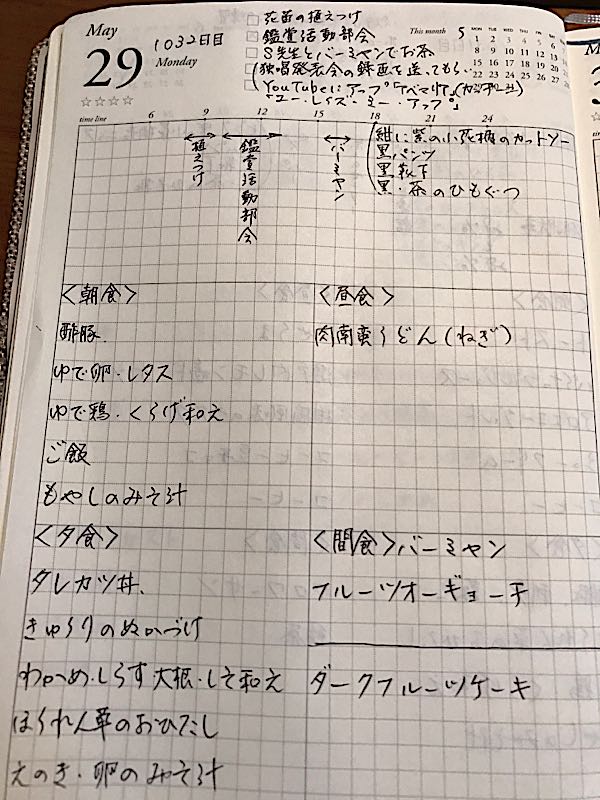 May
29
1032日目
Monday
☆☆☆☆
花苗の植えつけ
鑑賞活動部会
S先生とバーミヤンでお茶
(独唱発表会の録画を送ってもらい
YouTubeにアップ
「ユー・レイズ・ミー・アップ」
This month 5
1 2 3 4 5 6 7
8 9 10 11 12 13 14
15 16 17 18 19 20 21
22 23 24 25 26 27 28
time line 6 9 12 15 18 21 24
植えつけ
鑑賞活動部会
バーミヤン
紺に紫の小花柄のカットソー
黒パンツ
黒靴下
黒・茶のひもぐつ
<朝食>
酢豚
ゆで卵・レタス
ゆで鶏・くらげ和え
ご飯
もやしのみそ汁
<昼食>
肉南蛮うどん(ねぎ)
<夕食>
タレカツ丼、
きゅうりのぬかづけ
わかめ・しらす大根・しそ和え
ほうれん草のおひたし
えのき・卵のみそ汁
<間食>バーミヤン
フルーツオーギョーチ
ダークフルーツケーキ